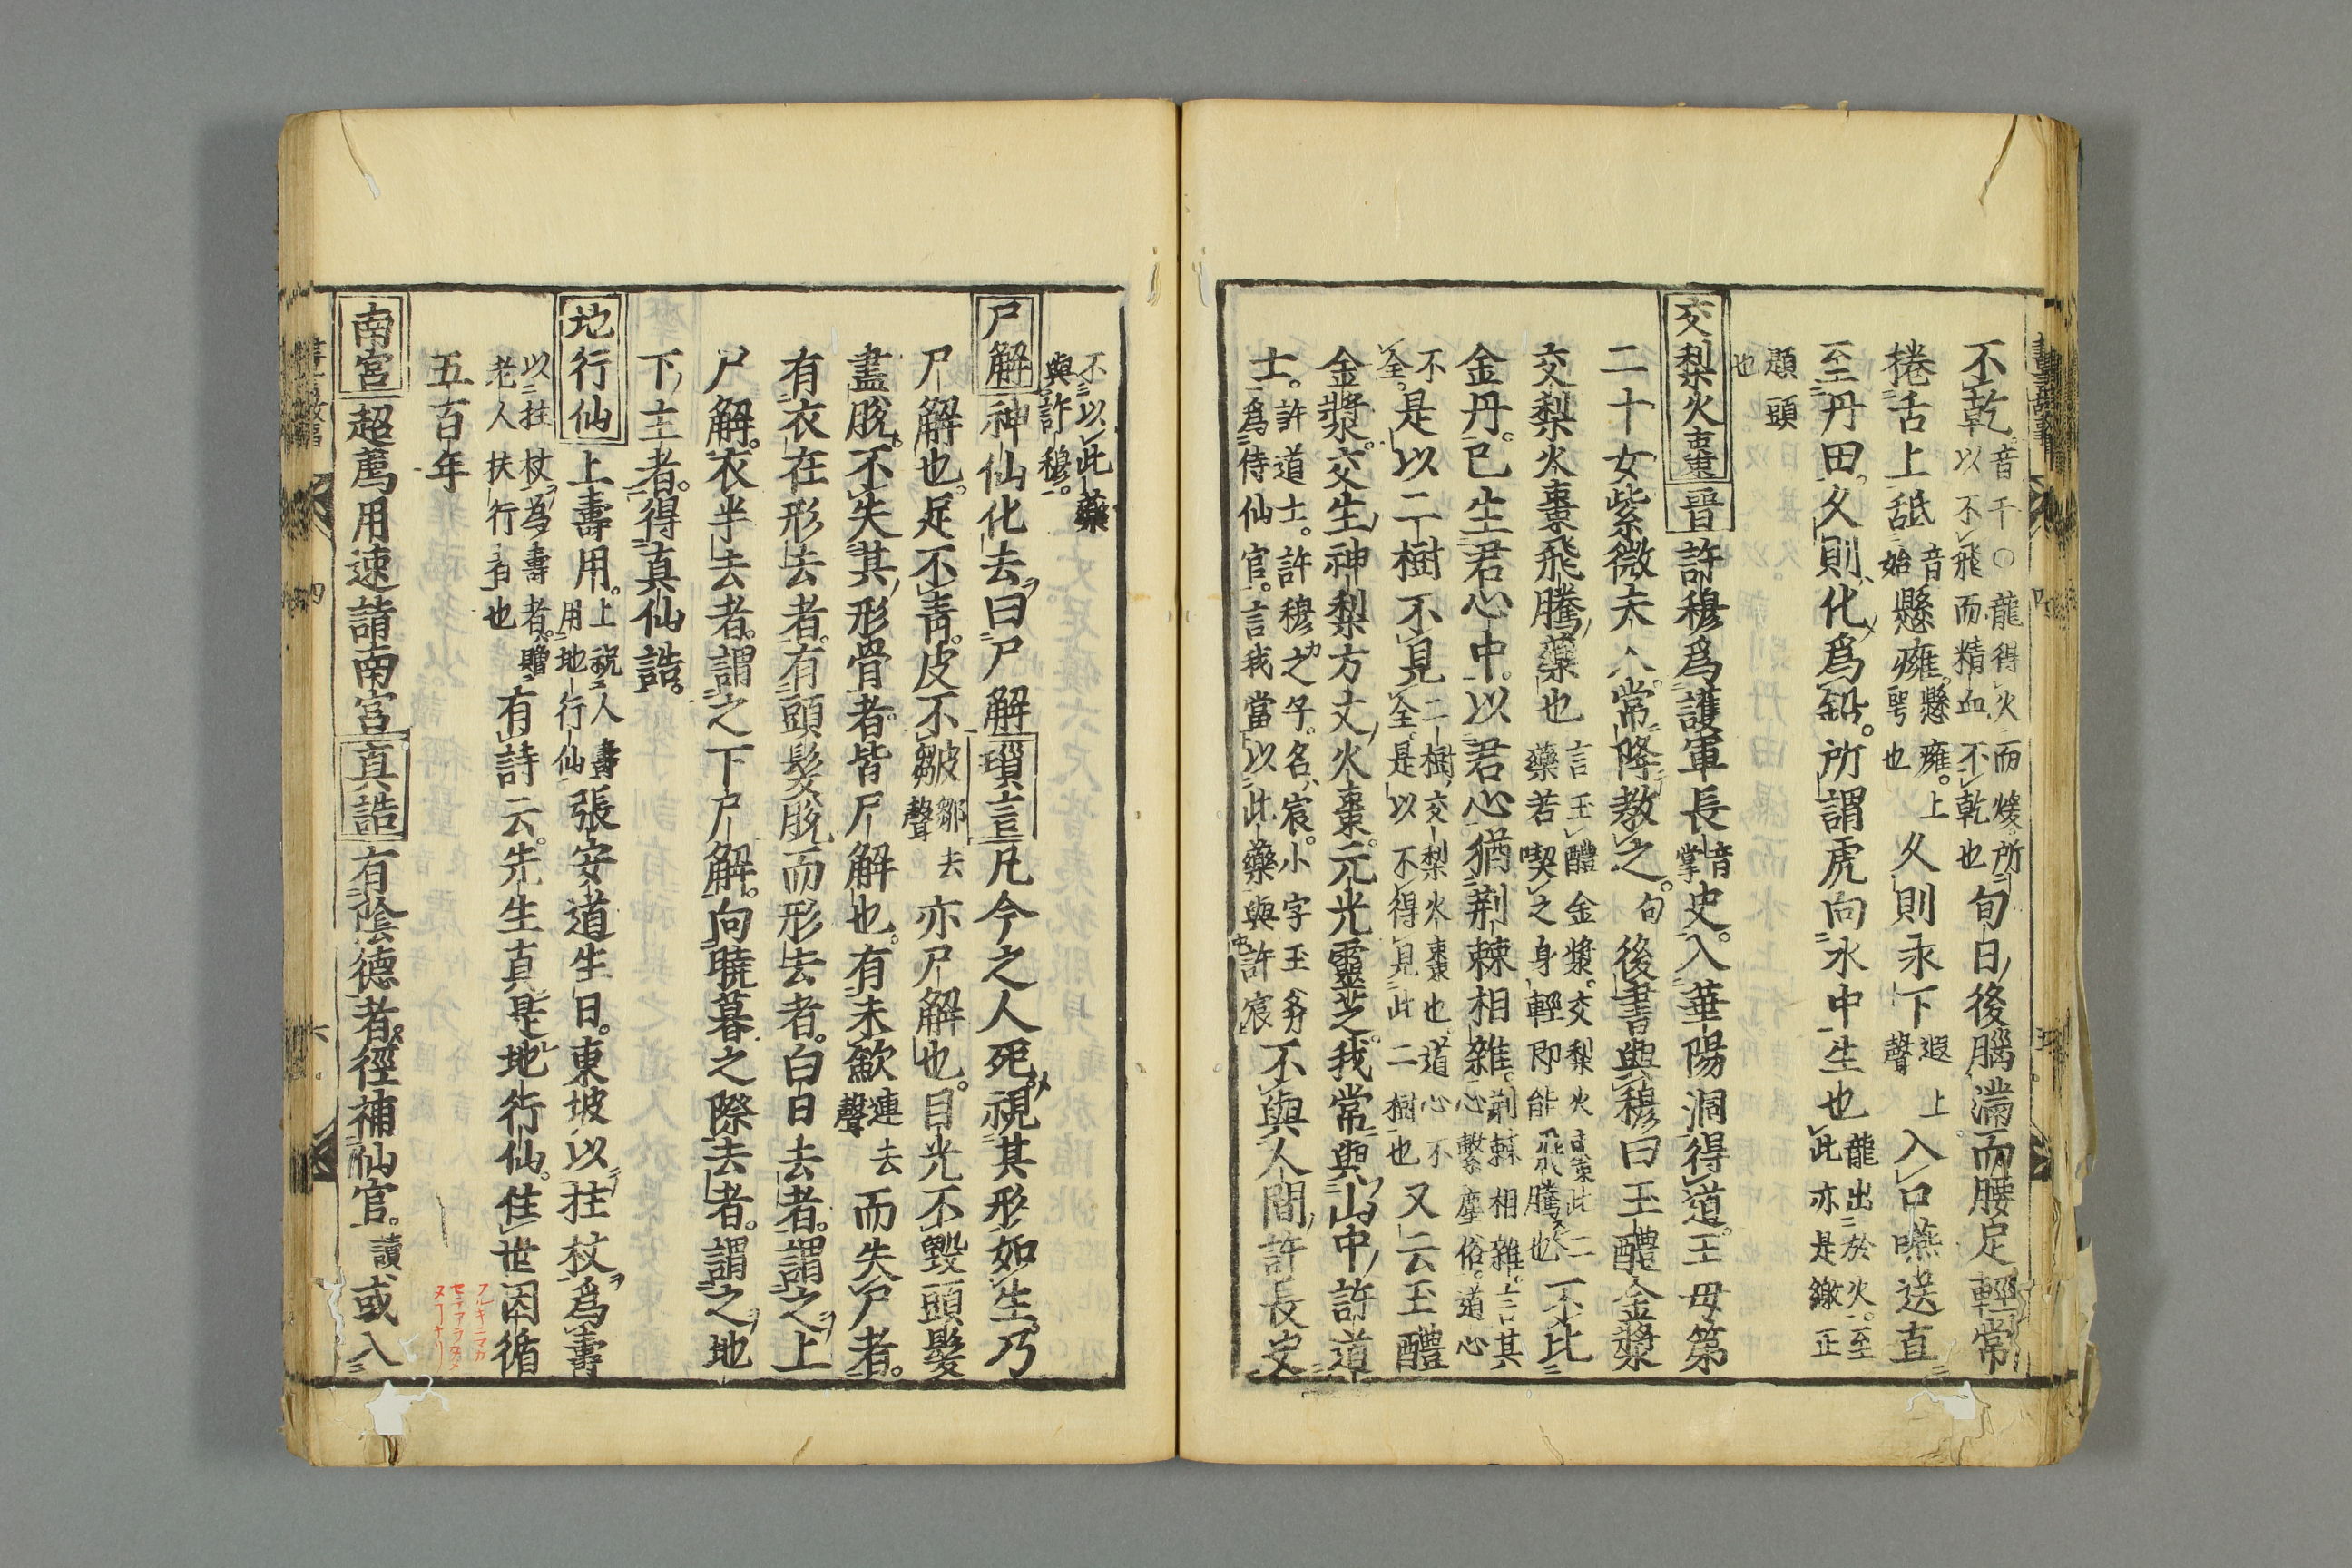 不乾音干○龍得火而煖所以不飛而精血不乾也旬日後腦滿而腰足輕常
捲舌上舐音始懸癰懸癰上腭也久則汞下遐上聲入口嚥送直
至丹田久則化爲鉛所謂虎向水中生也龍出於火至此亦是鏾正
顖頭也
交梨火棗晉許穆爲護軍長音掌史入華陽洞得道王母第
二十女紫微夫人常降教之句後書與穆曰玉醴金漿
交梨火棗飛騰藥也言玉醴金漿交梨火棗此二藥若喫之身輕即能飛騰也不比
金丹已生君心中以君心猶荊棘相雜荊棘相雜上言其心繫塵俗道心
不全是以二樹不見二樹交梨火棗也道心不全是以不得見此二樹也又云玉醴
金漿交生神梨方丈火棗元光靈芝我常與山中許道
士許道士許穆之子名㝛小字玉斧爲侍仙官言我當以此藥與許㝛不與人間許長史
不以此藥與許穆
尸解神仙化去曰尸解瑣言凡今之人死視其形如生乃
尸解也足不青皮不皺皺鄒去聲亦尸解也目光不毀頭髮
盡脫不失其形骨者皆尸解也有未歛連去聲而失尸者
有衣在形去者有頭髮脫而形去者白日去者謂之上
尸解衣半去者謂之下尸解向曉暮之際去者謂之地
下主者得真仙誥
地行仙上壽用上祝人壽用地行仙張安道生日東坡以拄杖爲壽
以拄杖爲壽者贈老人扶行者也有詩云先生真是地行仙住世因循
五百年
南宮超薦用速請南宮真誥有陰德者徑補仙官讀或入
アルキニマカ
セテアラタメ
ヌコトナリ